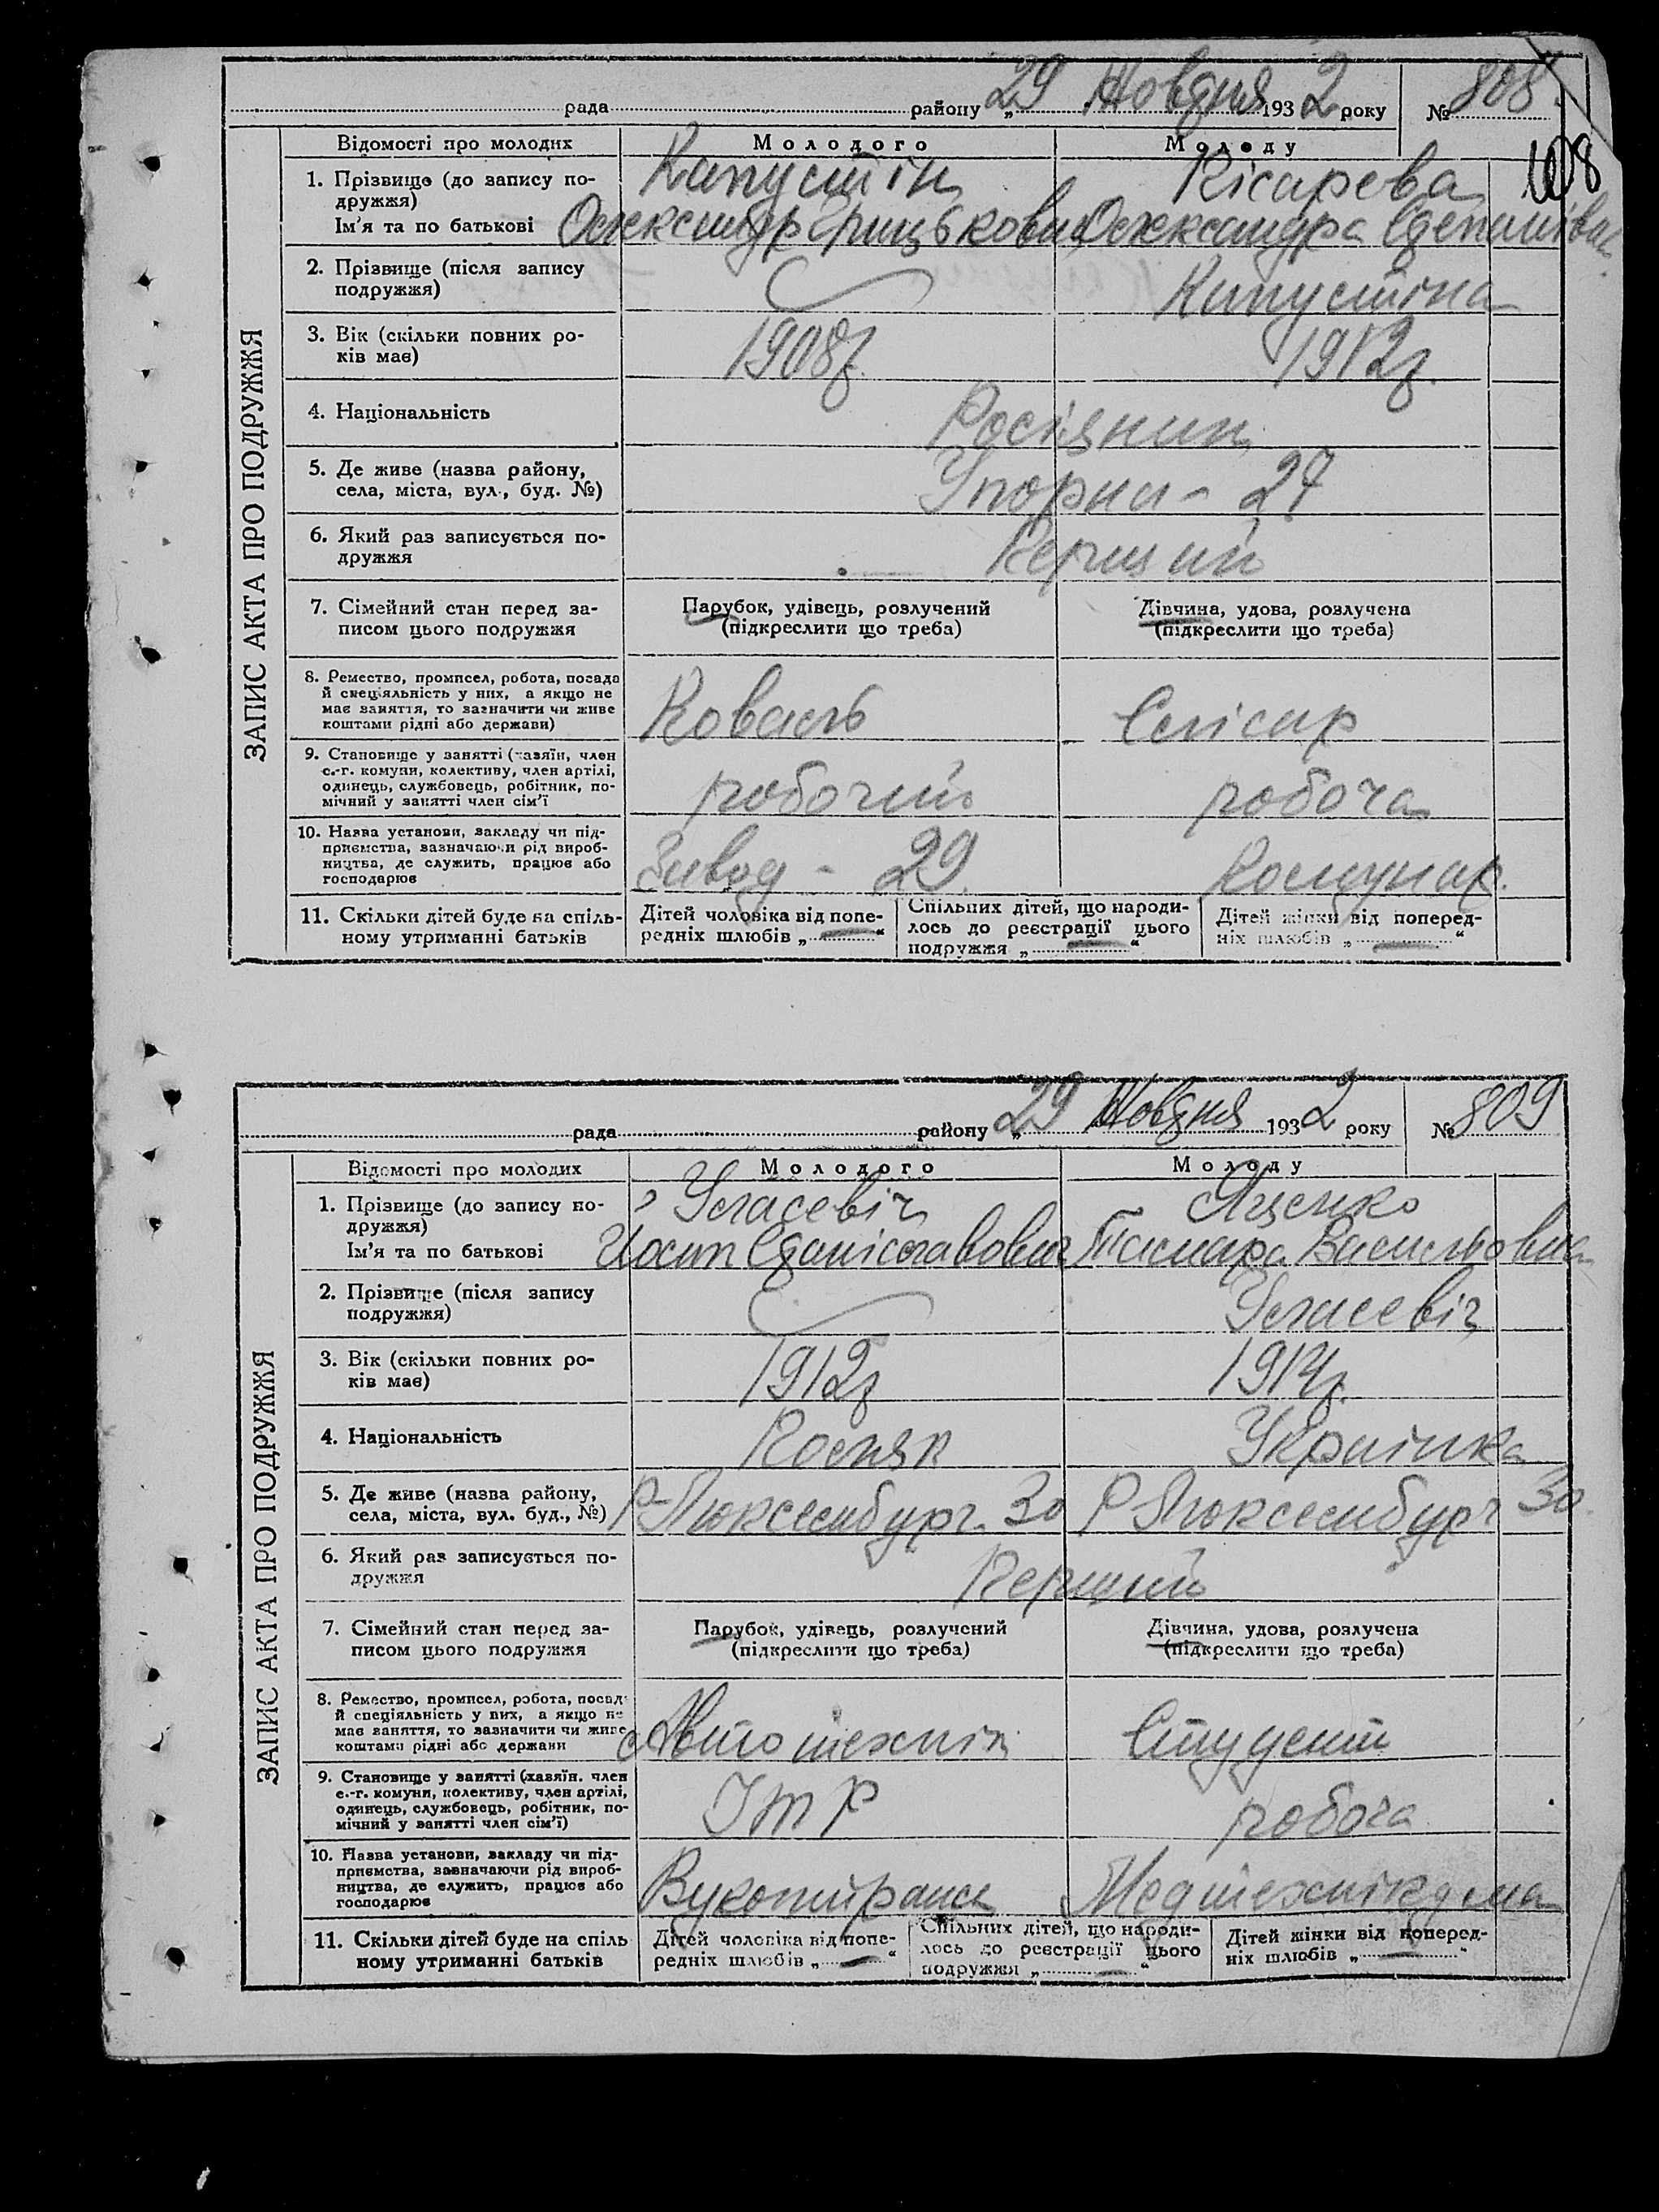 рада району „29 Жовдня 1932 року № 808
108
Відомості про молодих Молодого Молоду
1. Прізвище (до запису по- Капустін Кісарева
дружжя)
Ім'я та по батькові Олександр Грицькович Олександра Степанівна
2. Прізвище (після запису Капустіна
подружжя)
3. Вік (скільки повних ро- 1908р. 1912р.
ків має)
4. Національність Росіянин
5. Де живе (назва району, Упорна - 27
села, міста, вул., буд. №)
6. Який раз записується по- Перший
дружжя
7. Сімейний стан перед за- Парубок, удівець, розлучений Дівчина, удова, розлучена
писом цього подружжя (підкреслити що треба) (підкреслити що треба)
8. Ремество, промисел, робота, посада
й спеціяльність у них, а якщо не
має заняття, то зазначити чи живе Коваль Слісар
коштами рідні або держави)
9. Становище у занятті (хазяїн, член
с.-г. комуни, колективу, член артілі,
одинець, службовець, робітник, по- робочий робоча
мічний у занятті член сім'ї
10. Назва установи, закладу чи під-
приємства, зазначаючи рід вироб-
ництва, де служить, працює або Завод - 29. Комунар.
господарює
11. Скільки дітей буде на спіль- Дітей чоловіка від попе- Спільних дітей, що народи- Дітей жінки від поперед-
ному утриманні батьків редніх шлюбів „ — “ лось до реєстрації цього ніх шлюбів „ — “
подружжя „ — “
ЗАПИС АКТА ПРО ПОДРУЖЖЯ
рада району „29 Жовдня 1932 року № 809
Відомості про молодих Молодого Молоду
1. Прізвище (до запису по- Яценко
дружжя)
Ім'я та по батькові Йосип Станіславович Тамара Васильовна
2. Прізвище (після запису
подружжя)
3. Вік (скільки повних ро- 1912р 1914р.
ків має)
4. Національність Поляк Українка
5. Де живе (назва району, Р-Люксембург. 30 Р Люксембург 30.
села, міста, вул. буд., №)
6. Який раз записується по- Перший
дружжя
7. Сімейний стан перед за- Парубок, удівець, розлучений Дівчина, удова, розлучена
писом цього подружжя (підкреслити що треба) (підкреслити що треба)
8. Ремество, промисел, робота, посад
й спеціяльність у них, а якщо не
має заняття, то зазначити чи живе Автотехнік Студент
коштами рідні або держави
9. Становище у занятті (хазяїн. член
с.-г. комуни, колективу, член артілі,
одинець, службовець, робітник, по- ІТР робоча
мічний у занятті член сім'ї)
10. Назва установи, закладу чи під-
приємства, зазначаючи рід вироб-
ництва, де служить, працює або Вукотранс Медтехнікума
господарює
11. Скільки дітей буде на спіль Дітей чоловіка від попе- Спільних дітей, що народи- Дітей жінки від поперед-
ному утриманні батьків редніх шлюбів „ — “ лось до реєстрації цього ніх шлюбів „ — “
подружжя „ — “
ЗАПИС АКТА ПРО ПОДРУЖЖЯ